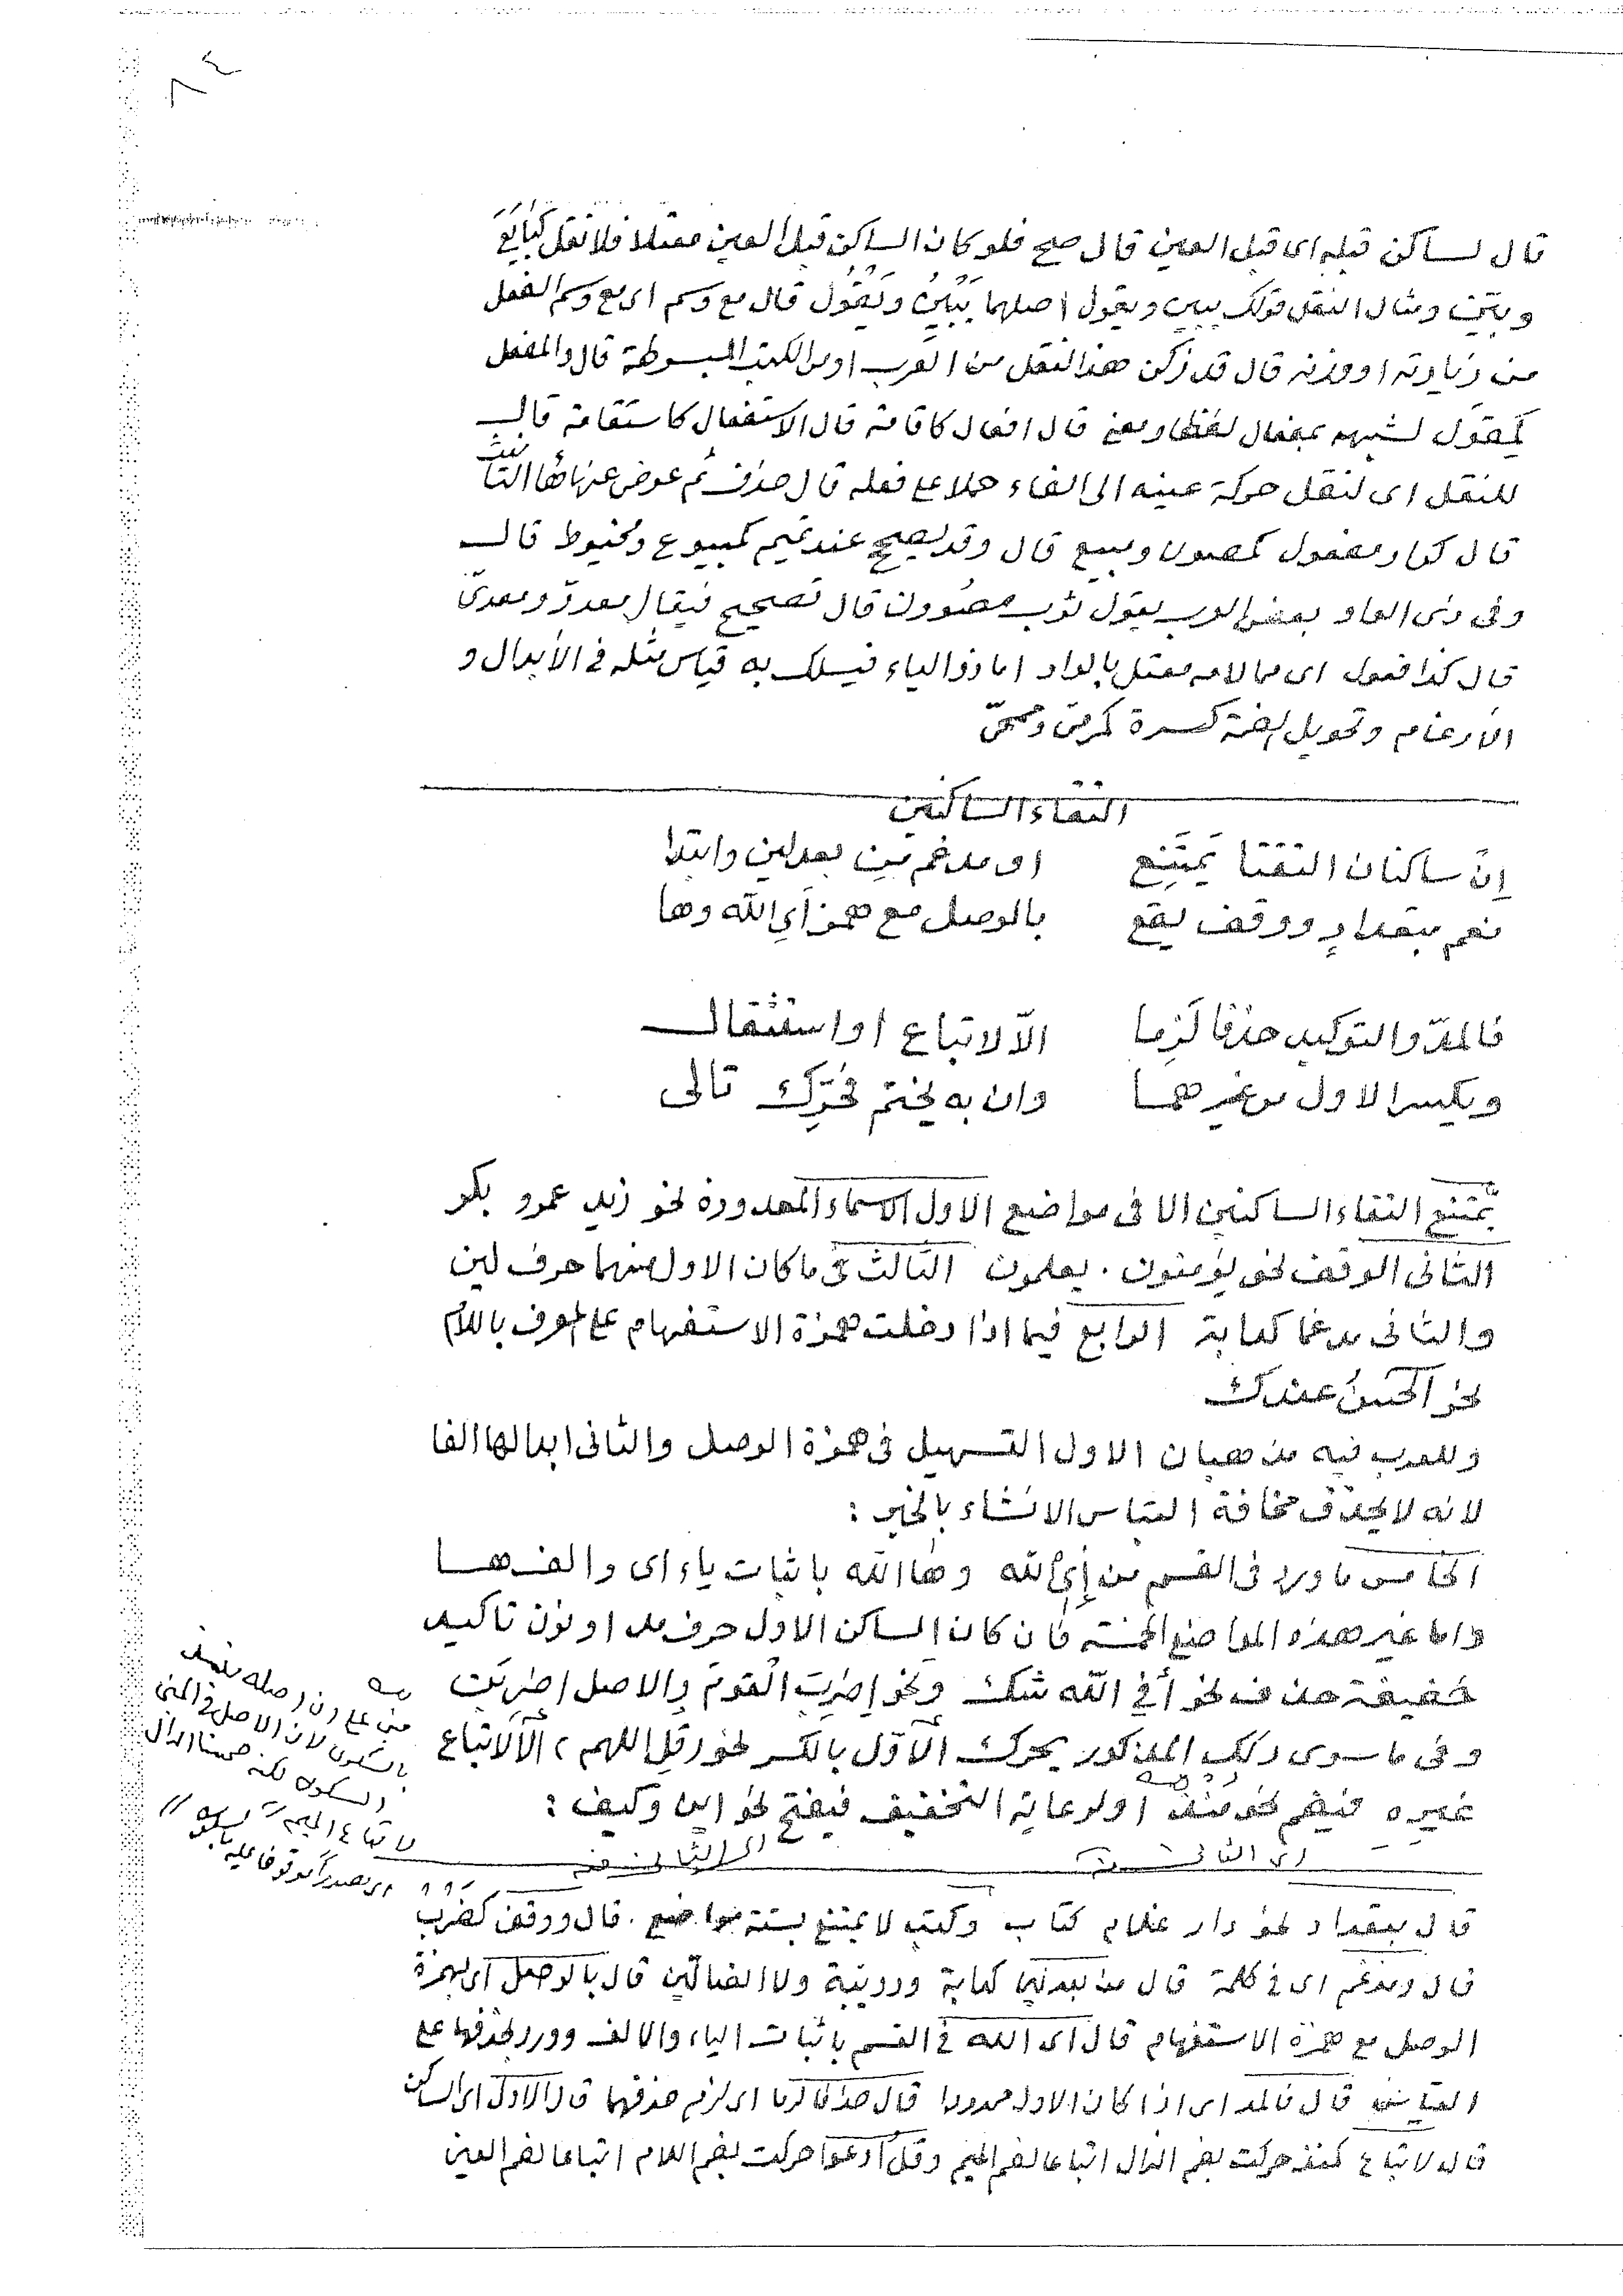 ٨٤
قال لساكن قبله اى قبل العين قال صح فلو كان الساكن قبل العين معتلا فلا نقل كبايع
وبيّن ومثال النقل قولك يبين ويقول اصلهما يَبْيِنُ ويَقْوُل قال مع وسم اى مع وسم الفعل
من زيادته او وزنه قال قد زكن هذا النقل من العرب او من الكتب المبسوطة قال والمفعل
كمِقوَل لشبهه بمفعال لفظا ومعنى قال افعال كاقامة قال الاستفعال كاستقامة قال
للنقل اى لنقل حركة عينه الى الفاء حملا على فعله قال حذف ثم عوض عنها ها التأنيث
قال كذا ومفعول كمصون ومبيع قال وقد يصحح عند تميم كمبيوع ومخيوط قال
وفى ذى الواو بعض العرب يقول ثوب مصوون قال تصحيح فيقال معدوّ ومعدىّ
قال كذا فعول اى مما لامه معتل بالواو اما ذو الياء فيسلك به قياس مثله فى الأبدال و
الأدغام وتحويل الضمة كسرة كمرمىّ ومحمىّ
التقاء الساكنين
إنّ ساكنان التقتا يَمتَنِع او مدغم من بعد لين وابتدا
نعم بتعدادٍ ووقف يقع بالوصل مع همز أي الله وها
فالمدّ والتوكيد حذفا لَزِما الّا لاتباع او استثقال
ويكسر الاول من غيرهما وان به يختم فحُرّك تالى
يمتنع التقاء الساكنين الا فى مواضع الاول الاسماء المعدودة نحو زيد عمرو بكر
الثانى الوقف نحو يؤمنون . يعلمون الثالث فى ما كان الاول منهما حرف لين
والثانى مدغما كدابة الرابع فيما اذا دخلت همزة الاستفهام على المعرف باللام
نحو آلحسنُ عندك
وللعرب فيه مذهبان الاول التسهيل فى همزة الوصل والثانى ابدالها الفا
لانه لا يحذف مخافة التباس الانشاء بالخبر :
الخامس ما ورد فى القسم من إي الله وها الله باثبات ياء اى والف ها
واما غير هذه المواضع الخمسة فان كان الساكن الاول حرف مد او نون تاكيد
خفيفة حذف نحو أفي الله شك ونحو إضربَ القومَ والاصل اضربَن
وفى ما سوى ذلك المذكور يحرك الأوّل بالكسر نحو قلِ اللهم ، الّا لاتباع
غيره فيضم نحو منذُ او لرعاية التخفيف فيفتح نحو اين وكيف :
مبنى على ان اصله
بالسكون لان الاصل فى المبنى
السكون لكنه ضمت الذال
لاتباع الميم
اى الثانى منه
اى الثانى منه
قال بتعداد نحو دار غلام كتاب وكتب لا يمتنع بستة مواضع . قال ووقف كضرب
قال ومدغم اى فى كلمة قال من بعد لين كدابة ودويبة ولا الضالّين قال بالوصل اى بهمزة
الوصل مع همزة الاستفهام قال اى الله فى القسم باثبات الياء والالف وورد بحذفها على
القياس قال فالمد اى اذا كان الاول ممدودا قال حذفا لزما اى لزم حذفهما قال الاول اى الساكن
قال لاتباع كمنذ حركت بضم الذال اتباعا لضم الميم وقلُ ادعوا حركت بضم اللام اتباعا لضم العين